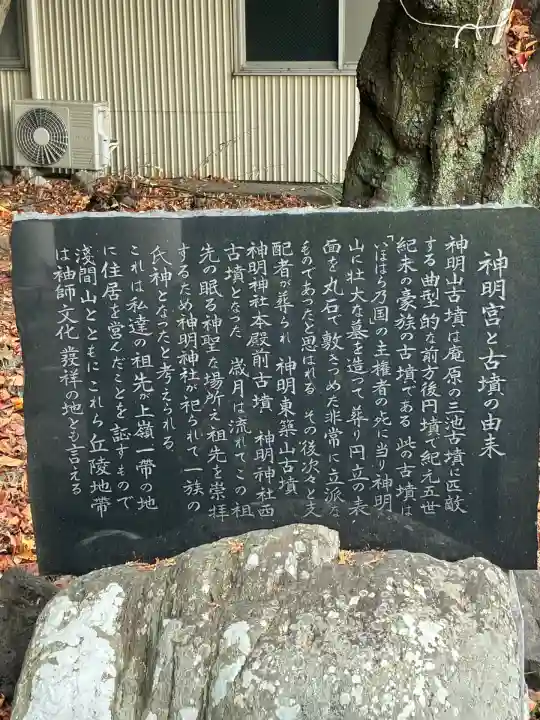 神明宮と古墳の由来
神明山古墳は庵原の三池古墳に匹敵
する曲型的な前方後円墳で紀元五世
紀末の豪族の古墳である 此の古墳は
「いほはら乃国」の主権者の死に当り神明
山に壮大な墓を造って葬り円立の表
面を丸石で敷きつめた非常に立派な
ものであったと思はれる その後次々と支
配者が葬られ 神明東築山古墳
神明神社本殿前古墳 神明神社西
古墳となった 歳月は流れてこの祖
先の眠る神聖な場所え祖先を崇拝
するため神明神社が祀られて一族の
氏神となったと考えられる
これは私達の祖先が上嶺一帯の地
に住居を営んだことを証すもので
淺間山とともにこれら丘陵地帯
は袖師文化発祥の地とも言える